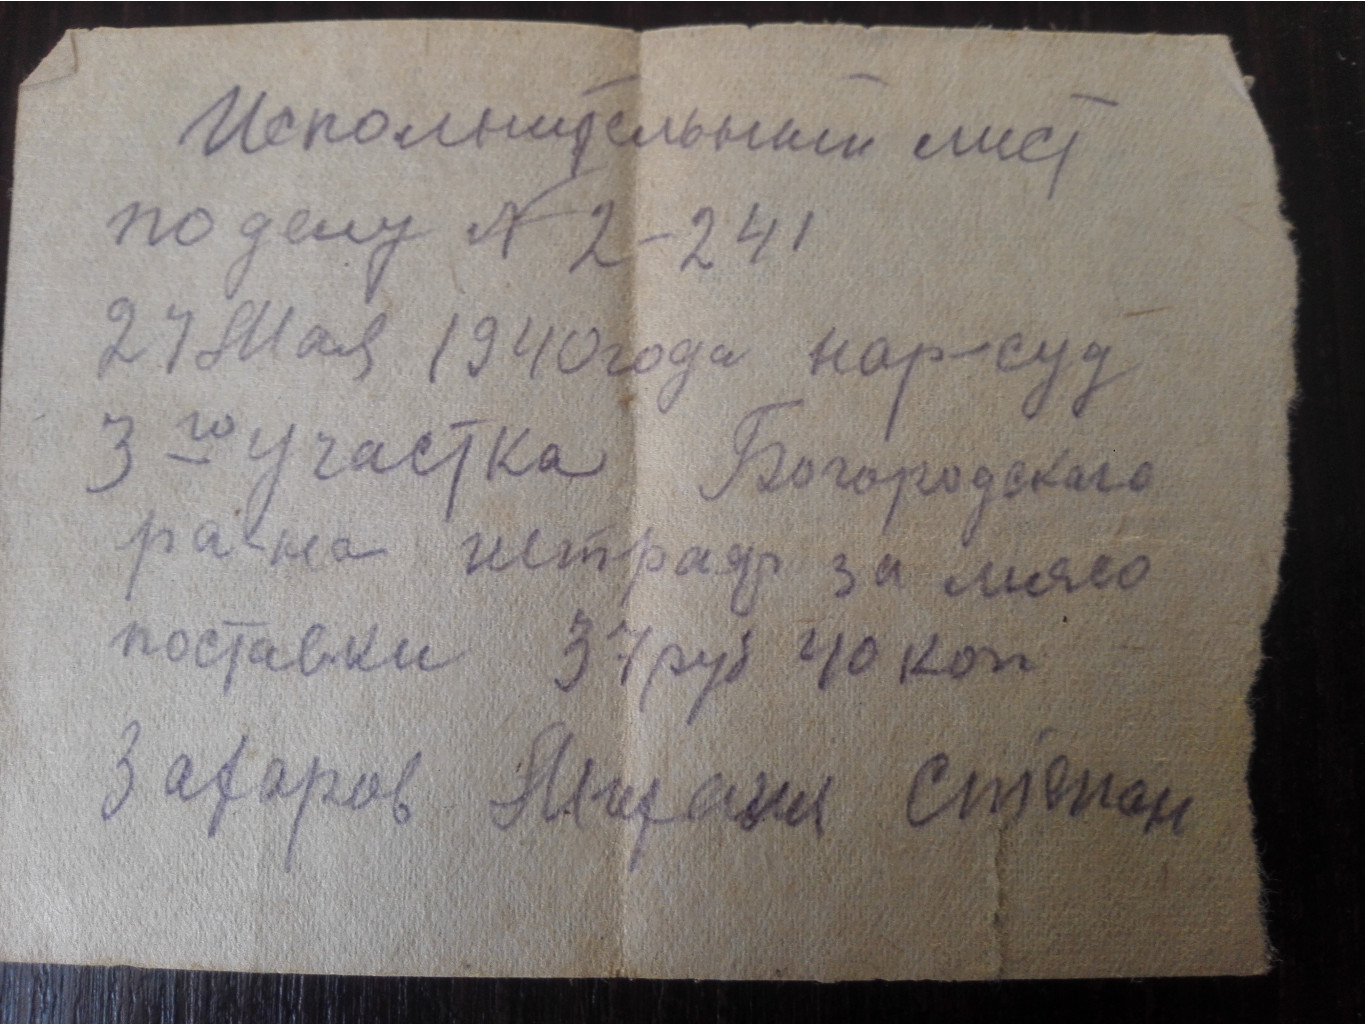 Исполнительный лист
по делу № 2-241
27 Мая 1940 года нар-суд
3го участка Богородскаго
ра-на штраф за мясо
поставки 37 руб 40 коп
Захаров Михаил Степан